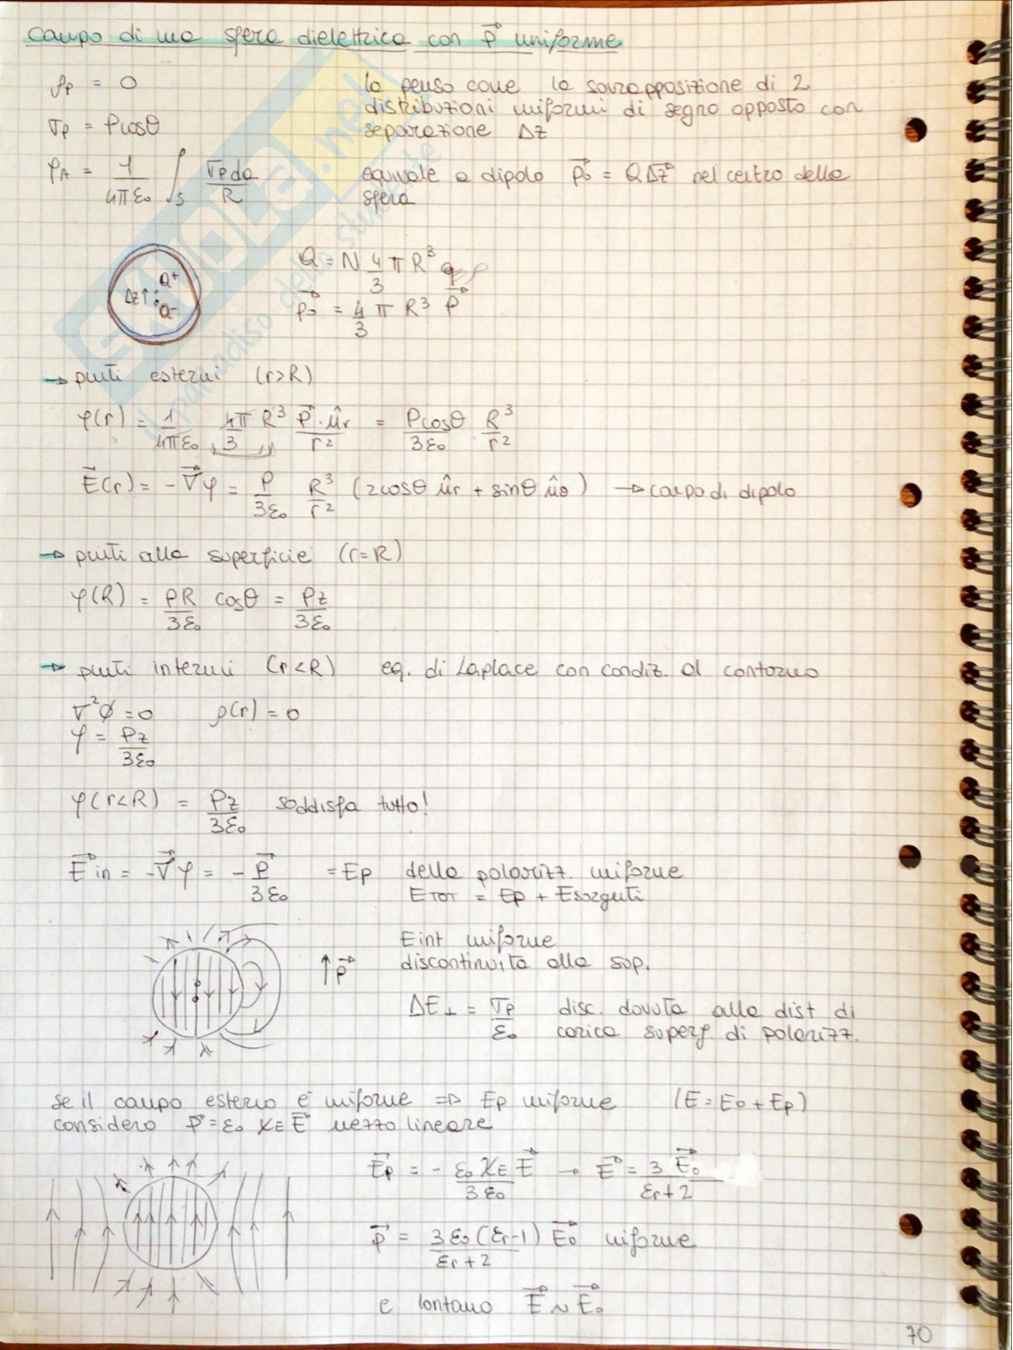 campo di una sfera dielettrica con P⃗ uniforme
ρp = 0 lo penso come la sovrapposizione di 2
distribuzioni uniformi di segno opposto con
σp = Pcosθ separazione Δz
φA = 1/4πε₀ ∫s σp da/R equivale a dipolo p⃗₀ = QΔz⃗ nel centro della
sfera
Q = N 4/3 π R³ q
Δz↑ Q+ Q-
p⃗₀ = 4/3 π R³ P⃗
→ punti esterni (r>R)
φ(r) = 1/4πε₀ 4π/3 R³ P⃗·ûr/r² = Pcosθ/3ε₀ R³/r²
E⃗(r) = -∇⃗φ = P/3ε₀ R³/r² (2cosθ ûr + sinθ ûθ) → campo di dipolo
→ punti alla superficie (r=R)
φ(R) = PR/3ε₀ cosθ = Pz/3ε₀
→ punti interni (r<R) eq. di Laplace con condiz. al contorno
∇²φ = 0 ρ(r) = 0
φ = Pz/3ε₀
φ(r<R) = Pz/3ε₀ soddisfa tutto!
E⃗in = -∇⃗φ = -P⃗/3ε₀ = Ep della polarizz. uniforme
ETOT = Ep + Esorgenti
Eint uniforme
↑P⃗ discontinuità alla sup.
ΔE⊥ = σp/ε₀ disc. dovuta alla dist di
carica superf di polarizz.
se il campo esterno è uniforme ⇒ Ep uniforme (E = E₀ + Ep)
considero P⃗ = ε₀ χE E⃗ mezzo lineare
E⃗p = - ε₀ χE E⃗/3ε₀ → E⃗ = 3 E⃗₀/εr+2
P⃗ = 3ε₀(εr-1)/εr+2 E⃗₀ uniforme
e lontano E⃗ ~ E⃗₀
70